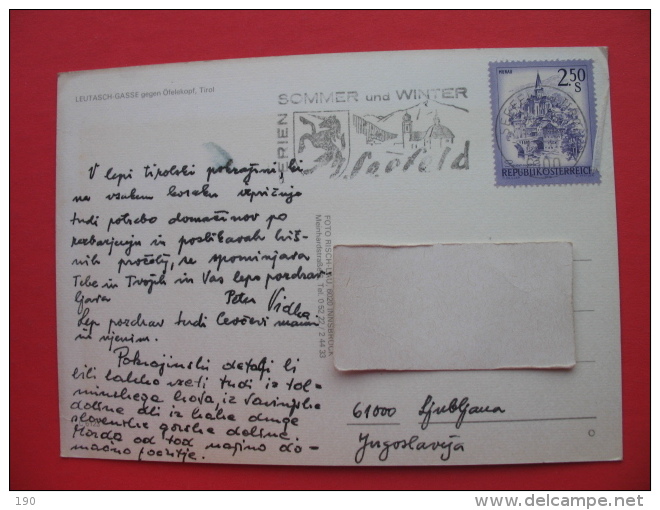 LEUTASCH-GASSE gegen Öfelekopf, Tirol
FERIEN SOMMER und WINTER
Seefeld
2.50
S
MURAU
REPUBLIK ÖSTERREICH
V lepi tirolski pokrajini, ki
na vsakem koraku izpričuje
tudi potrebo domačinov po
in poslikavah hiš-
nih pročelij, se spominjava
Tebe in Tvojih in Vas lepo pozdrav-
ljava Peter Vidka
Lep pozdrav tudi mami
in njenim.
Pokrajinski detalji bi
bili lahko vzeti tudi iz tol-
minskega kota, iz Savinjske
doline ali iz kake druge
slovenske gorske doline.
Morda od tod najino do-
mačno počutje.
FOTO RISCH-LAU, 6020 INNSBRUCK
Meinhardstraße Tel. 0 52 22 / 2 44 33
61000 Ljubljana
Jugoslavija
©
190
delcampe.net